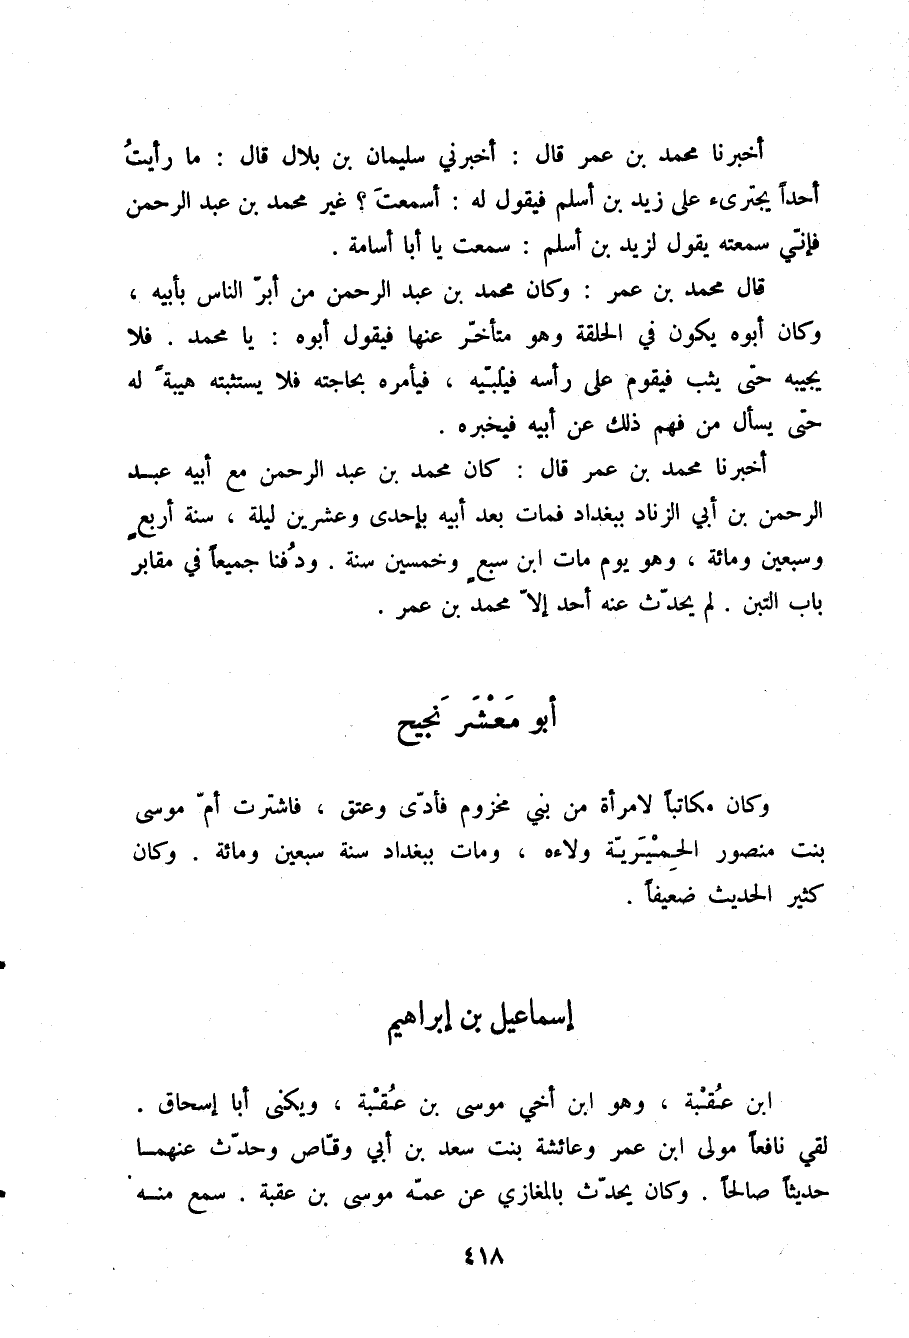 أخبرنا محمد بن عمر قال : أخبرني سليمان بن بلال قال : ما رأيتُ
أحداً يجترىء على زيد بن أسلم فيقول له : أسمعتَ ؟ غير محمد بن عبد الرحمن
فإنّي سمعته يقول لزيد بن أسلم : سمعت يا أبا أسامة .
قال محمد بن عمر : وكان محمد بن عبد الرحمن من أبرّ الناس بأبيه ،
وكان أبوه يكون في الحلقة وهو متأخّر عنها فيقول أبوه : يا محمد . فلا
يجيبه حتّى يثب فيقوم على رأسه فيلبّيه ، فيأمره بحاجته فلا يستثبته هيبةً له
حتّى يسأل من فهم ذلك عن أبيه فيخبره .
أخبرنا محمد بن عمر قال : كان محمد بن عبد الرحمن مع أبيه عبـد
الرحمن بن أبي الزناد ببغداد فمات بعد أبيه بإحدى وعشرين ليلة ، سنة أربعٍ
وسبعين ومائة ، وهو يوم مات ابن سبعٍ وخمسين سنة . ودُفنا جميعاً في مقابر
باب التبن . لم يحدّث عنه أحد إلاّ محمد بن عمر .
أبو مَعْشَر نَجيح
وكان مكاتباً لامرأة من بني مخزوم فأدّى وعتق ، فاشترت أمّ موسى
بنت منصور الحِمْيَريّة ولاءه ، ومات ببغداد سنة سبعين ومائة . وكان
كثير الحديث ضعيفاً .
إسماعيل بن إبراهيم
ابن عُقْبة ، وهو ابن أخي موسى بن عُقْبة ، ويكنى أبا إسحاق .
لقي نافعاً مولى ابن عمر وعائشة بنت سعد بن أبي وقّاص وحدّث عنهمـا
حديثاً صالحاً . وكان يحدّث بالمغازي عن عمّه موسى بن عقبة . سمع منـه
٤١٨